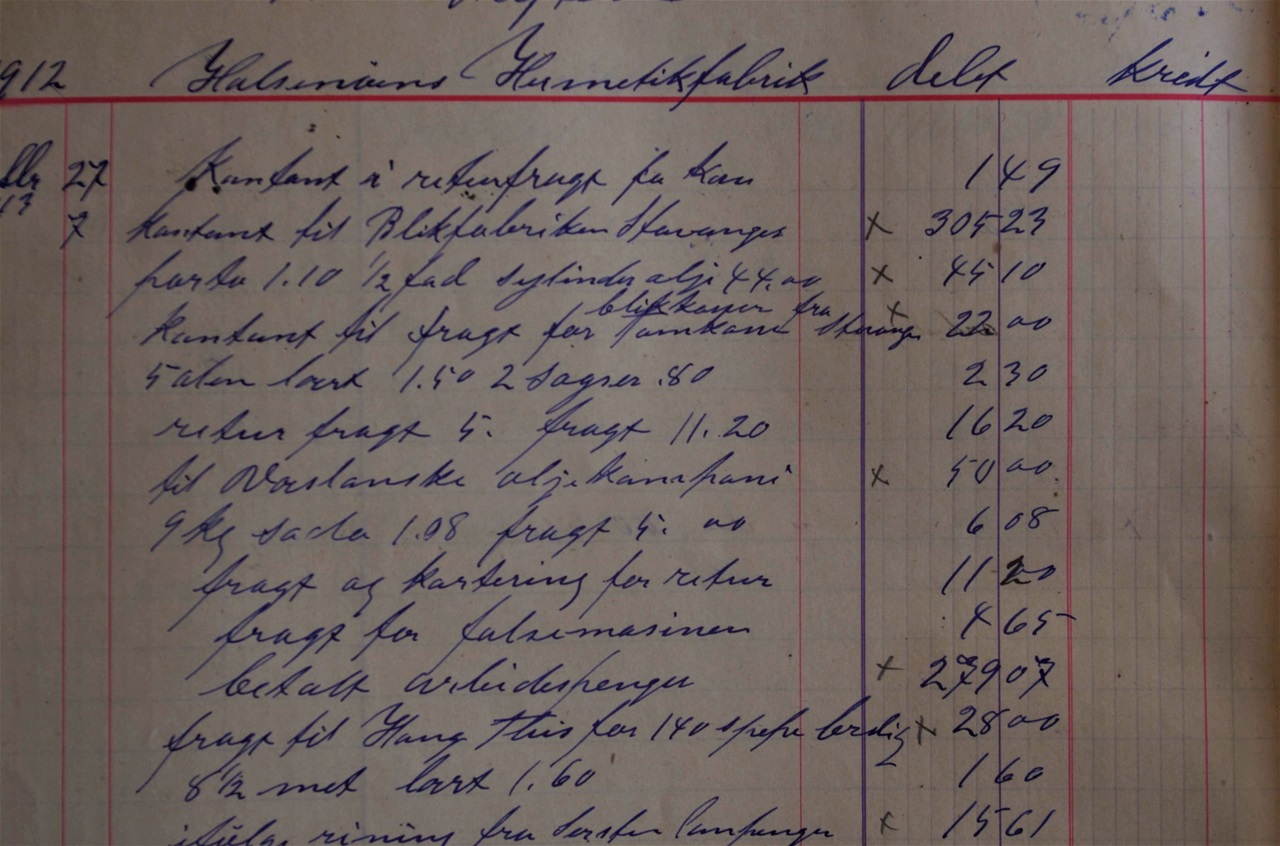 1912 Halsenøens Hermetikfabrik debt kredt
27 Kontant i returfragt fo Kan 1 49
13
7 kontant til Blikfabriken Stavanger x 305 23
porto 1.10 1/2 fad sylinder olje 44.00 x 45 10
blikkasser fra x
kontant til fragt for Tomkann Stavanger 22 00
5 alen lært 1.50 2 sagser .80 2 30
retur fragt 5. fragt 11.20 16 20
til Væstlanske oljekompani x 50 00
9 kg soda 1.08 fragt 5. 00 6 08
fragt og kartering for retur 11 20
fragt for falsemasinen 4 65
betalt arbeidspenger x 279 07
fragt til Haug for 140 x 28 00
8 1/2 met lært 1.60 1 60
fra x 15 61